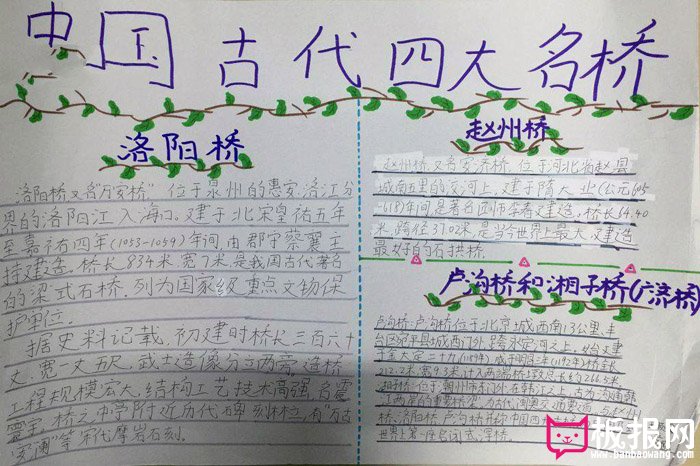 中国古代四大名桥
洛阳桥
洛阳桥又名"万安桥"位于泉州的惠安、洛江分
界的洛阳江入海口。建于北宋皇祐五年
至嘉祐四年(1053-1059)年间,由郡守蔡襄主
持建造,桥长834米宽7米,是我国古代著名
的梁式石桥,列为国家级重点文物保
护单位。
据史料记载,初建时桥长三百六十
丈,宽一丈五尺,武士造像分立两旁,造桥
工程规模宏大,结构工艺技术高强,名震
寰宇,桥之中学附近历代碑刻林立,有"万古
安澜"等宋代摩岩石刻。
赵州桥
赵州桥又名安济桥,位于河北省赵县
城南五里的洨河上,建于隋大业(公元605
-618)年间是著名匠师李春建造,桥长64.40
米,跨径37.02米,是当今世界上最大、建造
最好的石拱桥。
卢沟桥和湘子桥(广济桥)
卢沟桥:卢沟桥位于北京城西南13公里丰
台区宛平县城西门外,跨永定河之上,始建
于金大定二十九(1189年)成于明昌三(1192)年桥长
212.2米宽9.3米计入两端桥堍总长约266.5米
湘子桥:位于潮州市
世界上著
板报网
www.banbaowang.com